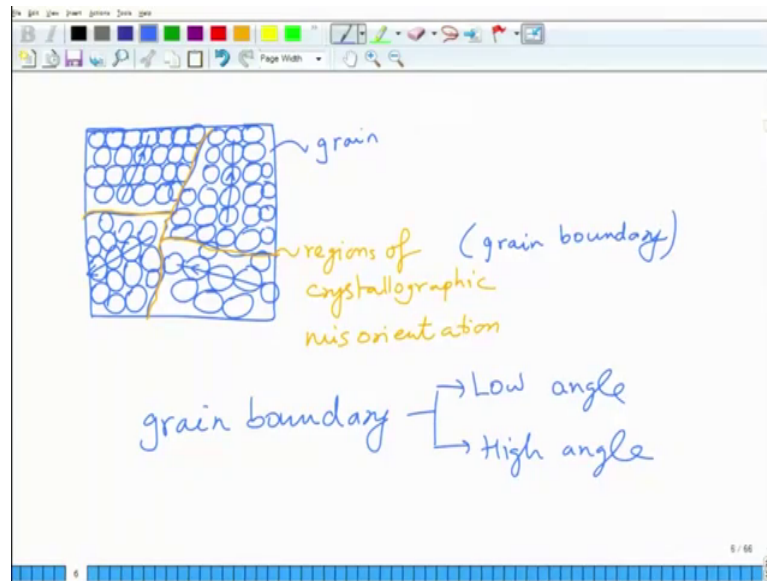 File Edit View Insert Actions Tools Help
B I
Page Width
grain
regions of (grain boundary)
crystallographic
misorientation
grain boundary
Low angle
High angle
6 / 66
6